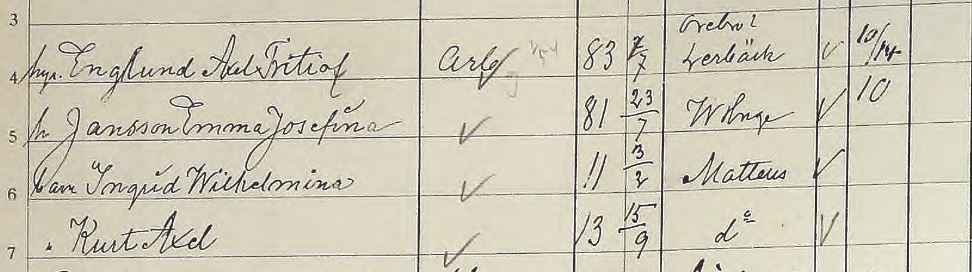 3
Örebro?
4 hyr. Englund Axel Fritiof Arb 83 7/7 Lerbäck 10/14
5 h Jansson Emma Josefina 81 23/7 10
6 barn Ingrid Wilhelmina 11 3/2 Matteus
7 " Kurt Axel 13 15/9 do